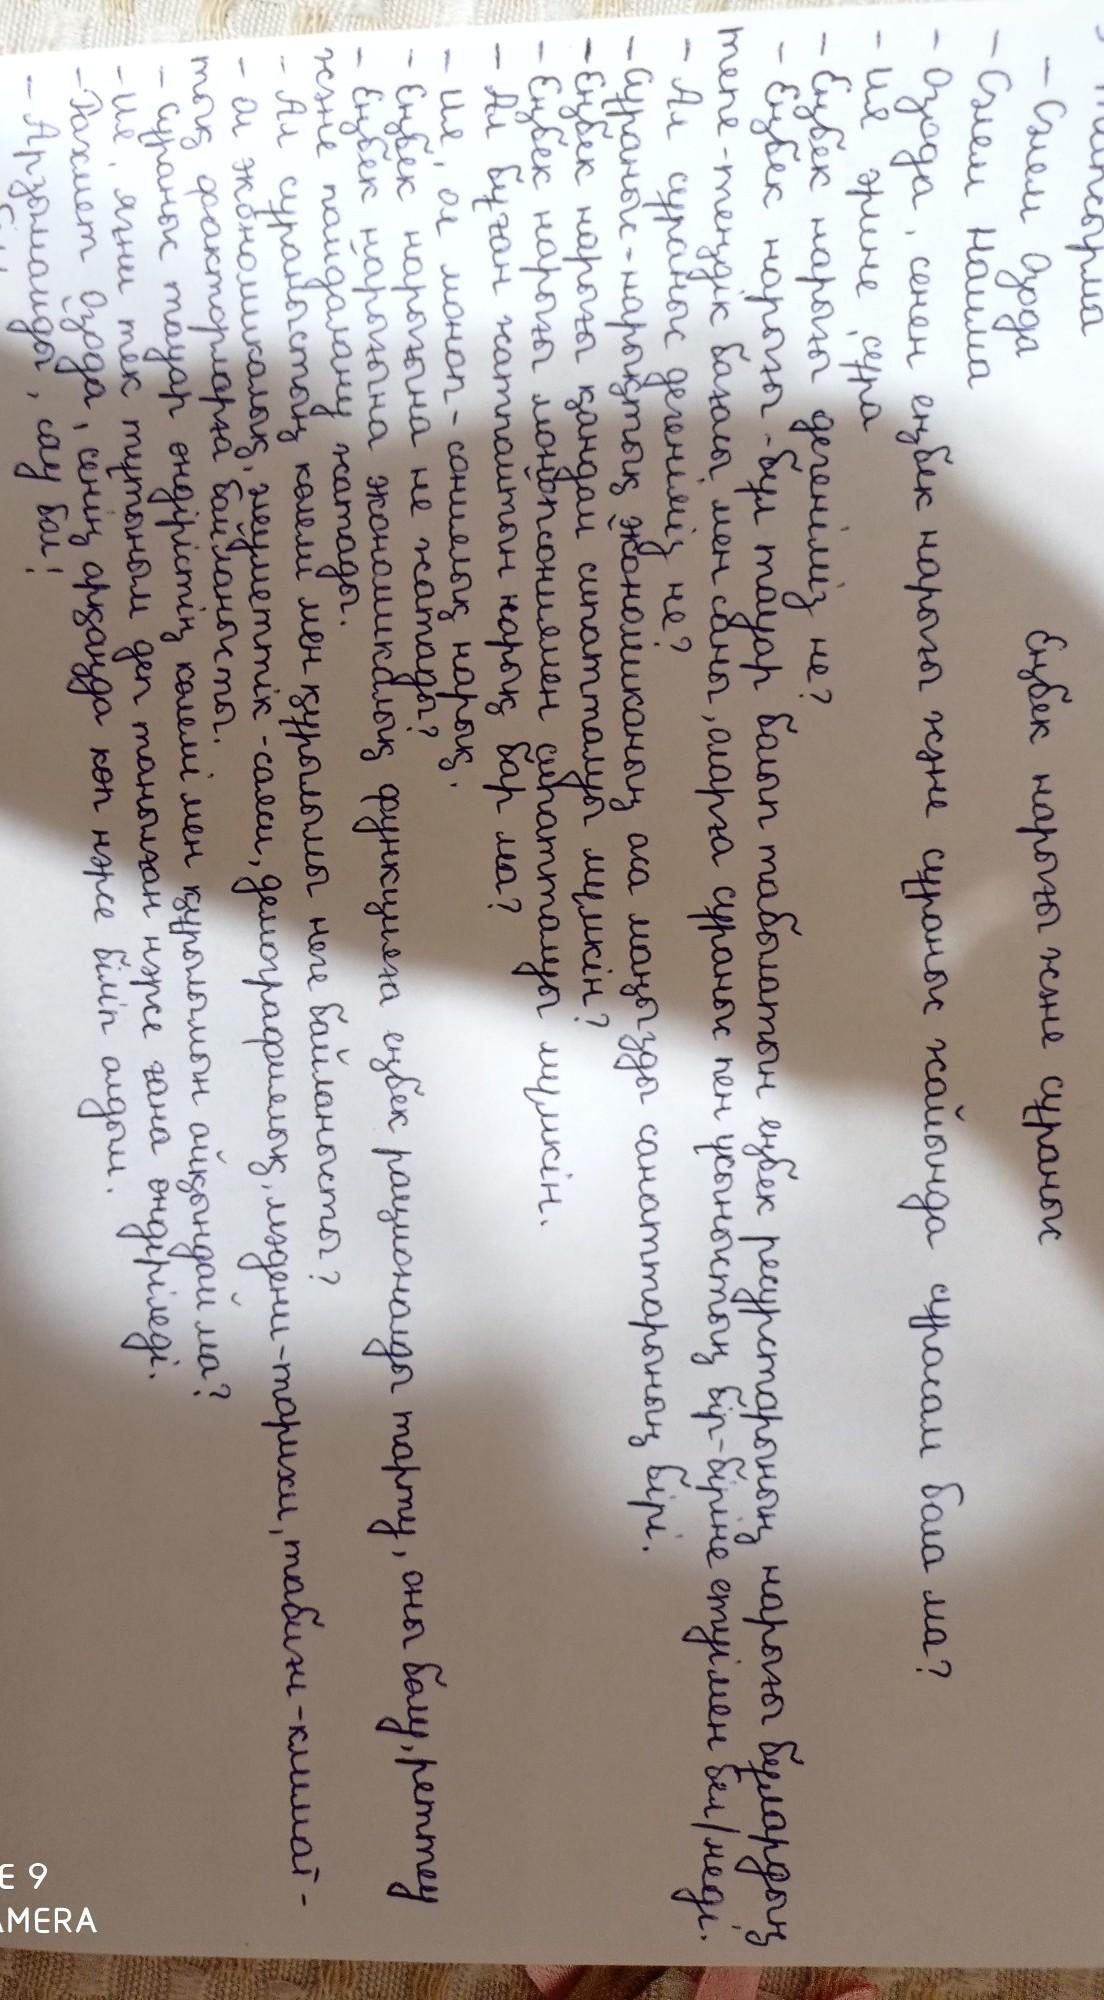 тапсырма
Еңбек нарығы және сұраныс
– Сәлем Озода
– Сәлем Наима
– Озода, сенен еңбек нарығы және сұраныс жайында сұрасам бола ма?
– Ия әрине, сұра
– Еңбек нарығы дегеніміз не?
– Еңбек нарығы - бұл тауар болып табылатын еңбек ресурстарының нарығы бұлардың
тепе-теңдік бағасы мен саны, оларға сұраныс пен ұсыныстың бір-біріне өтуімен бел/неді.
– Ал сұраныс дегеніміз не?
– Сұраныс-нарықтық экономиканың аса маңызды санаттарының бірі.
– Еңбек нарығы қандай сипатталуы мүмкін?
– Еңбек нарығы монопсониямен сипатталуы мүмкін.
– Ал бұған жатпайтын нарық бар ма?
– Ия, ол моноп-сониялық нарық.
– Еңбек нарығына не жатады?
– Еңбек нарығына экономикалық функцияға еңбек рационалды тарту, оны бөлу, реттеу
және пайдалану жатады.
– Ал сұраныстың көлемі мен құрылымы неге байланысты?
– Ол экономикалық, әлеуметтік-саяси, демографиялық, мәдени-тарихи, табиғи-климат-
тық факторларға байланысты.
– Сұраныс тауар өндірістің көлемі мен құрылымын айқындай ма?
– Ия, яғни тек тұтыным деп танылған нәрсе ғана өндіріледі.
– Рахмет Озода, сенің арқаңда көп нәрсе біліп алдым.
– Арзымайды, сау бол!
E 9
AMERA